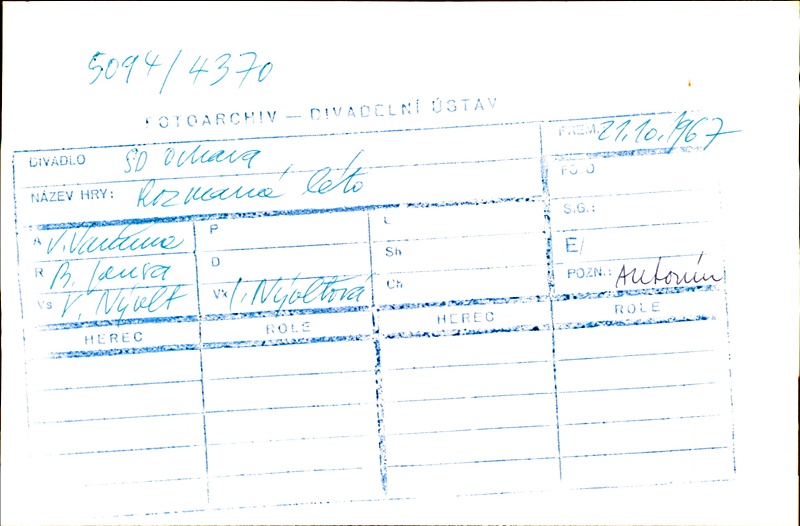 5094/4370
FOTOARCHIV — DIVADELNÍ ÚSTAV
DIVADLO SD Ostrava PREM. 21.10.1967
NÁZEV HRY: Rozmarné léto FOTO
S.G.:
A V. Vančura P L E/
R B. Jansa D Sh POZN.: Antonín
Vs V. Nývlt Vk I. Nývltová Ch
HEREC ROLE HEREC ROLE